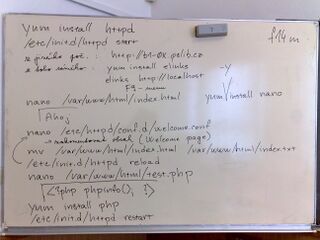 yum install httpd
/etc/init.d/httpd start
f14m
http://bt-0X.pslib.cz
yum install elinks -y
elinks http://localhost
F9 - menu
nano /var/www/html/index.html yum install nano
Ahoj
nano /etc/httpd/conf.d/welcome.conf
(welcome page)
mv /var/www/html/index.html /var/www/html/index.txt
/etc/init.d/httpd reload
nano /var/www/html/test.php
<?php phpinfo(); ?>
yum install php
/etc/init.d/httpd restart